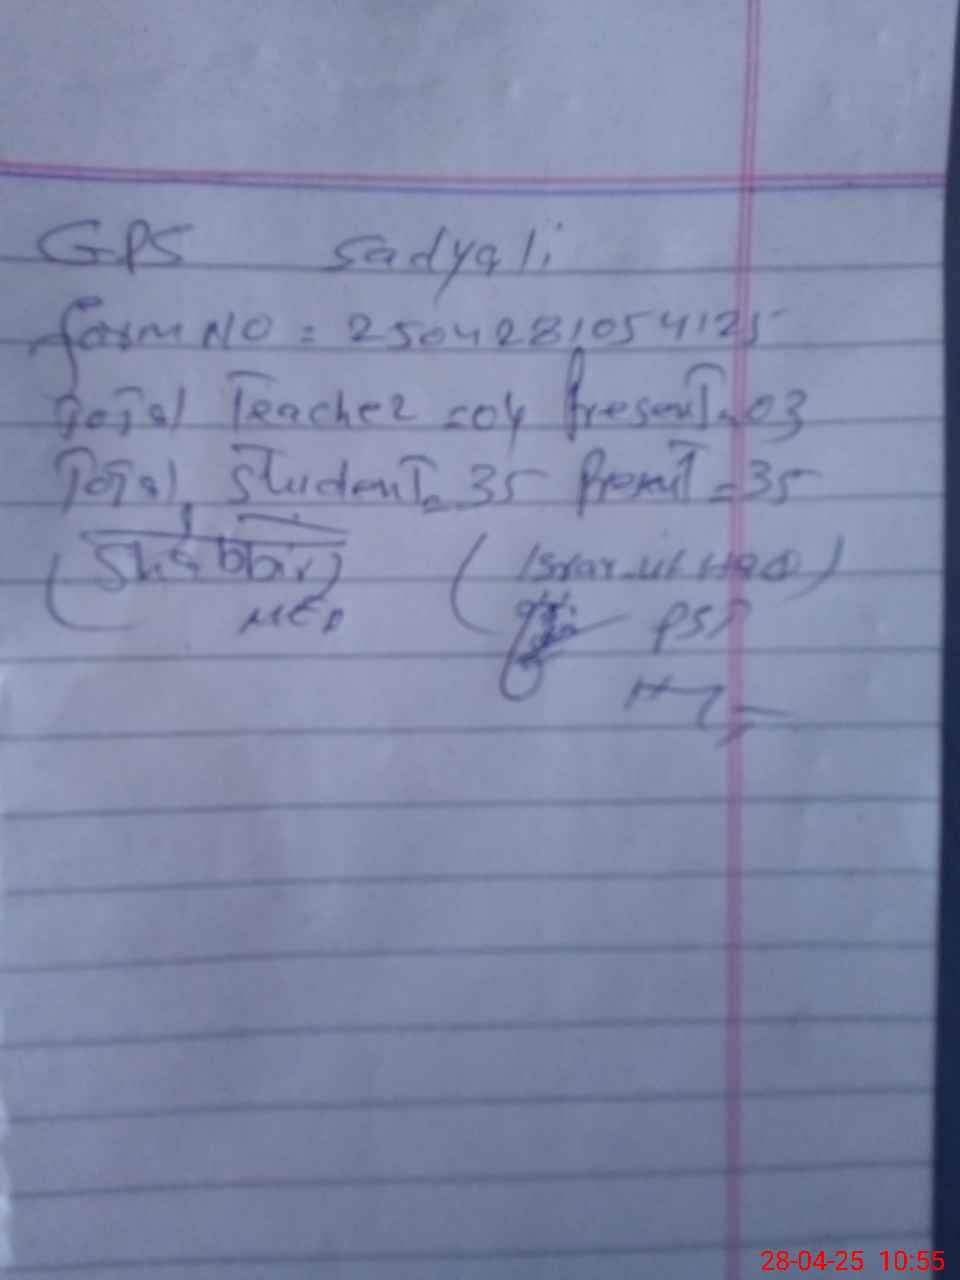 GPS Sadyali
form NO = 2504281054125
Total Teacher = 04 Present = 03
Total Student = 35 Present = 35
(Shabbir) (Israr-ul Haq)
PST
28-04-25 10:55